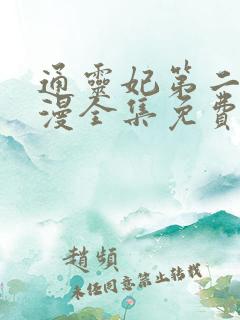 通靈妃第二
漫全集免費
趙頻
未任同意禁止转载